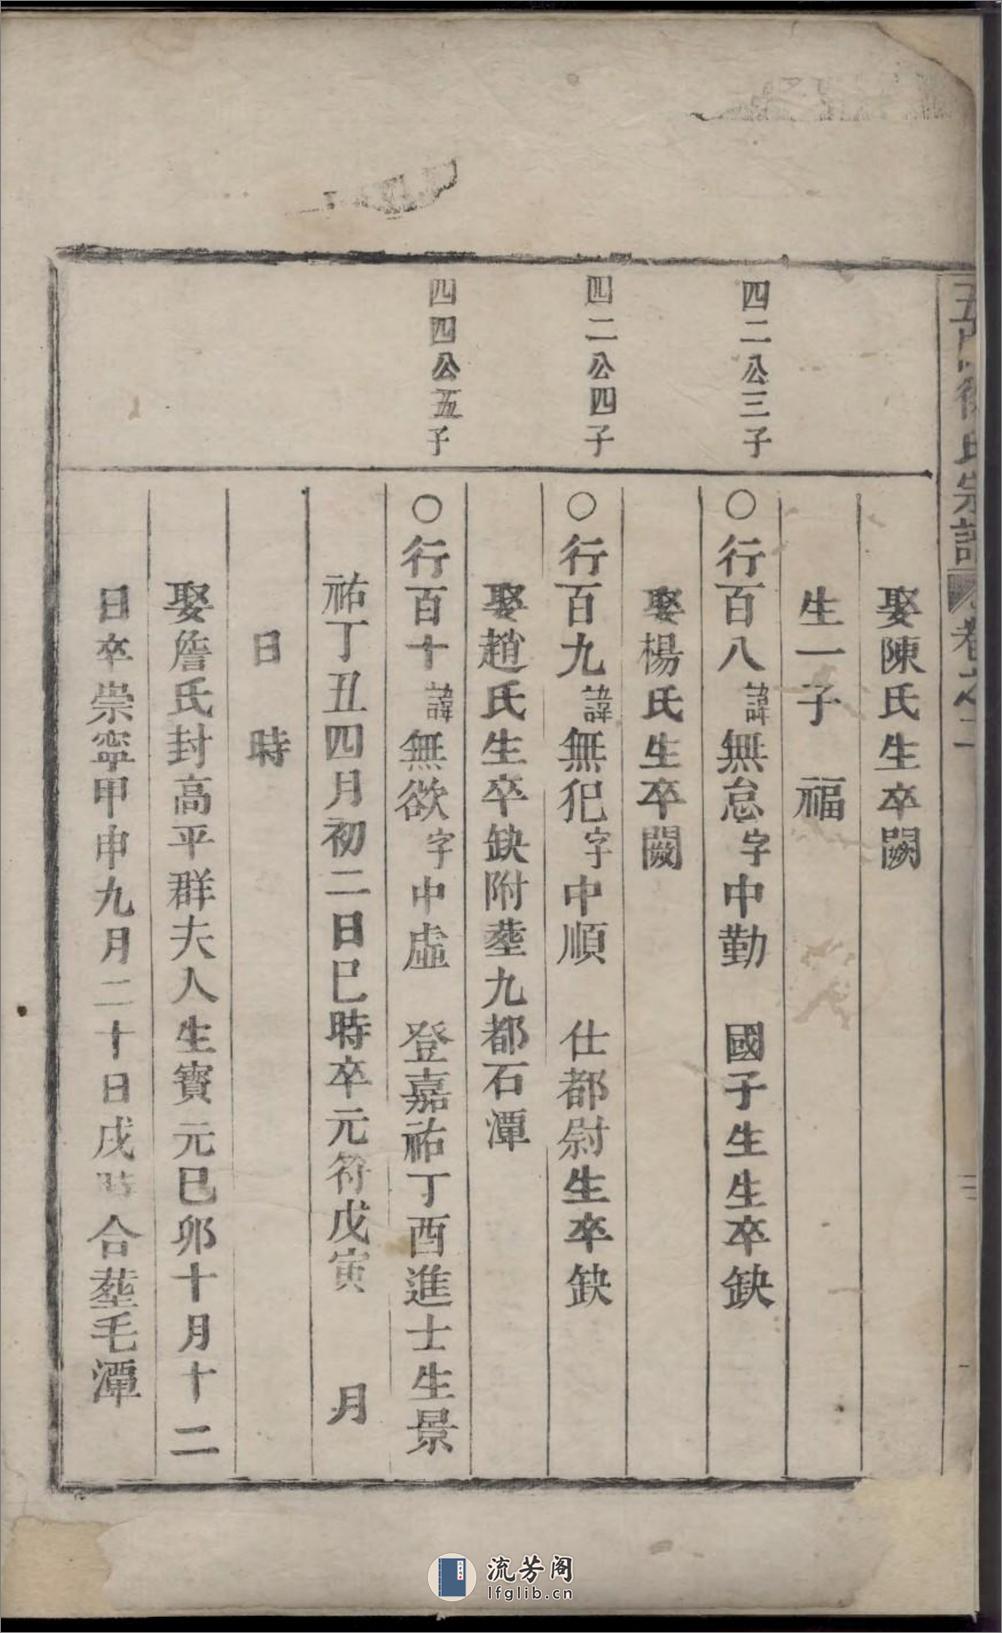 氏宗譜 卷之二
娶陳氏生卒闕
生一子 福
四二公三子
○行百八諱無怠字中勤 國子生生卒缺
娶楊氏生卒闕
四二公四子
○行百九諱無犯字中順 仕都尉生卒缺
娶趙氏生卒缺附塟九都石潭
四四公五子
○行百十諱無欲字中虛 登嘉祐丁酉進士生景
祐丁丑四月初二日巳時卒元符戊寅 月
日 時
娶詹氏封高平群夫人生寶元已卯十月十二
日卒崇寧甲申九月二十日戌時合塟毛潭
流芳阁
lfglib.cn